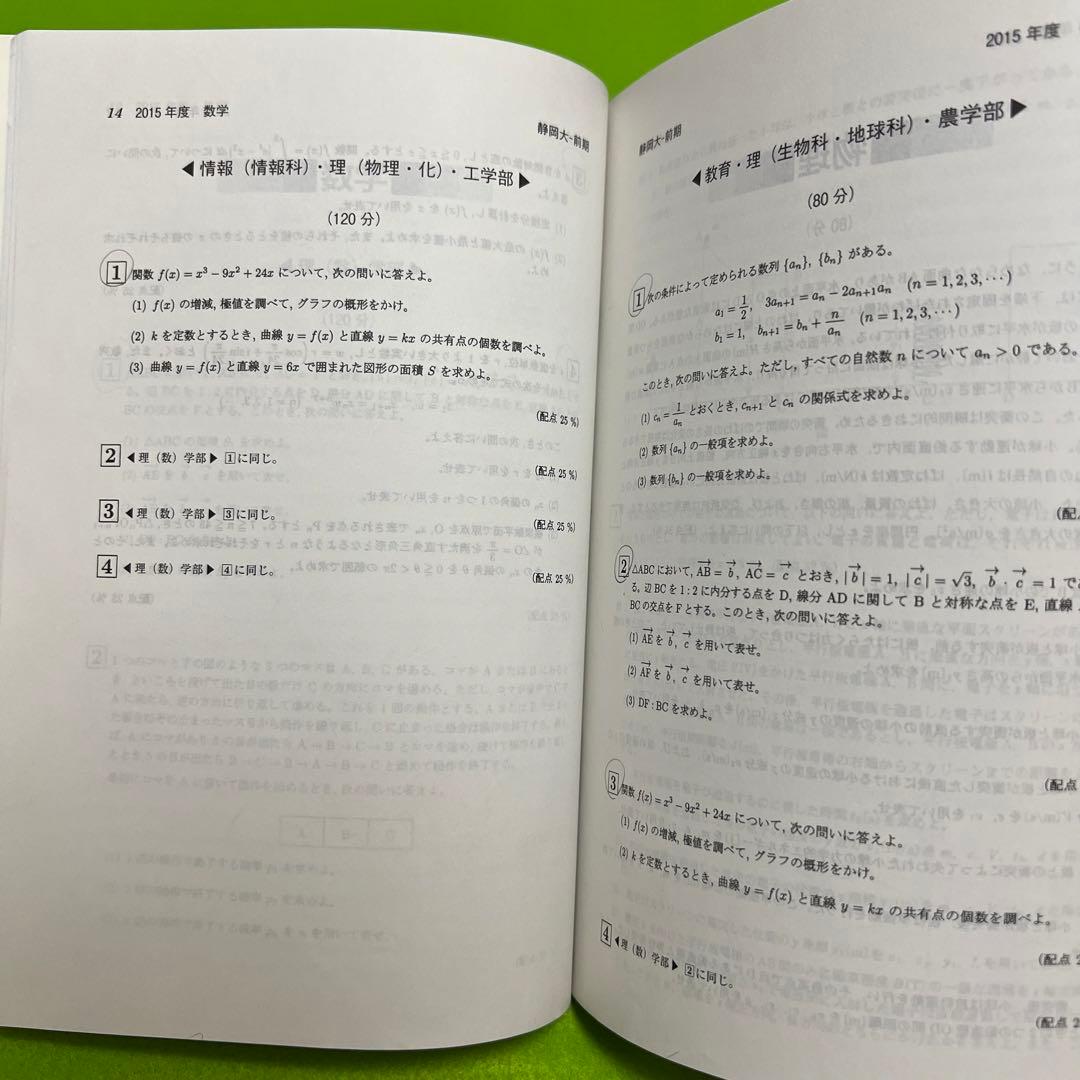 14 2015年度 数学
静岡大-前期
◀情報（情報科）・理（物理・化）・工学部▶
（120分）
1 関数 f(x) = x³ − 9x² + 24x について, 次の問いに答えよ。
(1) f(x) の増減, 極値を調べて, グラフの概形をかけ。
(2) k を定数とするとき, 曲線 y = f(x) と直線 y = kx の共有点の個数を調べよ。
(3) 曲線 y = f(x) と直線 y = 6x で囲まれた図形の面積 S を求めよ。
(配点 25 %)
2 ◀理（数）学部▶ 1 に同じ。
(配点 25 %)
3 ◀理（数）学部▶ 3 に同じ。
(配点 25 %)
4 ◀理（数）学部▶ 4 に同じ。
(配点 25 %)
2015年度
静岡大-前期
◀教育・理（生物科・地球科）・農学部▶
（80分）
1 次の条件によって定められる数列 {aₙ}, {bₙ} がある。
a₁ = 1/2, 3aₙ₊₁ = aₙ − 2aₙ₊₁aₙ (n = 1, 2, 3, ···)
b₁ = 1, bₙ₊₁ = bₙ + n/aₙ (n = 1, 2, 3, ···)
このとき, 次の問いに答えよ。ただし, すべての自然数 n について aₙ > 0 である。
(1) cₙ = 1/aₙ とおくとき, cₙ₊₁ と cₙ の関係式を求めよ。
(2) 数列 {aₙ} の一般項を求めよ。
(3) 数列 {bₙ} の一般項を求めよ。
(配点
2 △ABC において, →AB = →b, →AC = →c とおき, |→b| = 1, |→c| = √3, →b · →c = 1 で
る。辺 BC を 1 : 2 に内分する点を D, 線分 AD に関して B と対称な点を E, 直線
BC の交点を F とする。このとき, 次の問いに答えよ。
(1) →AE を →b, →c を用いて表せ。
(2) →AF を →b, →c を用いて表せ。
(3) DF : BC を求めよ。
(配点
3 関数 f(x) = x³ − 9x² + 24x について, 次の問いに答えよ。
(1) f(x) の増減, 極値を調べて, グラフの概形をかけ。
(2) k を定数とするとき, 曲線 y = f(x) と直線 y = kx の共有点の個数を調べよ。
(配点
4 ◀理（数）学部▶ 2 に同じ。
(配点 2